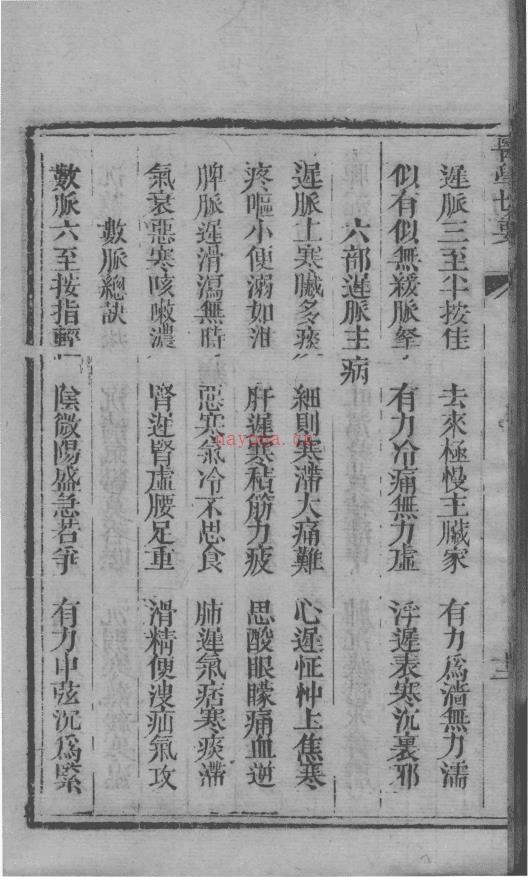 遲脈三至牛按佳　去來極慢主臟家　有力為濇無力濡
似有似無緩脈經　有力冷痛無力虛　浮遲表寒沉裏邪
六部遲脈主病
遲脈上寒臟多痰　細則寒滯大痛難　心遲怔忡上焦寒
疼嘔小便溺如泔　肝遲寒秸筋力疲　思酸眼矇痛血逆
脾脈遲滑瀉無時　惡寒氣冷不思食　肺遲氣痞寒痰滯
氣衰惡寒咳嗽濃　腎遲腎虛腰足重　滑精便溲疝氣攻
數脈總訣
數脈六至按指輕　陰微陽盛急若爭　有力中弦沉為緊
nayona.cn